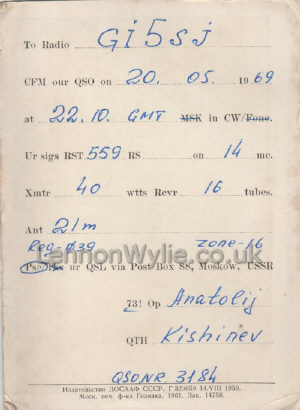 To Radio GI5SJ
CFM our QSO on 20. 05. 1969
at 22.10. GMT MSK in CW/Fone.
Ur sigs RST 559 RS on 14 mc.
Xmtr 40 wtts Rcvr 16 tubes.
Ant 21m
Reg-Ø39 zone-16
LennonWylie.co.uk
Pse Tks ur QSL via Post Box 88, Moskow, USSR
73! Op Anatolij
QTH Kishinev
QSO NR 3184
Издательство ДОСААФ СССР. Г 320659 14/VIII 1959.
Моск. печ. ф-ка Гознака. 1961. Зак. 14758.